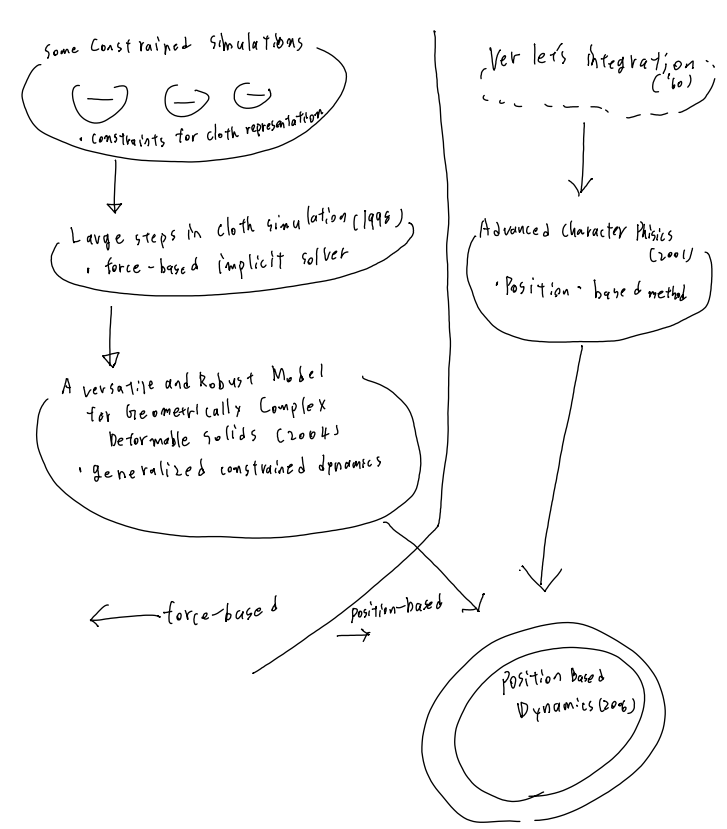 Some Constrained Simulations
• constraints for cloth representation
Large steps in cloth simulation (1998)
• force-based implicit solver
A versatile and Robust Model
for Geometrically Complex
Deformable Solids (2004)
• generalized constrained dynamics
force-based
position-based
Verlet's integration
('60)
Advanced Character Phisics
(2001)
• Position-based method
Position Based
Dynamics (2006)